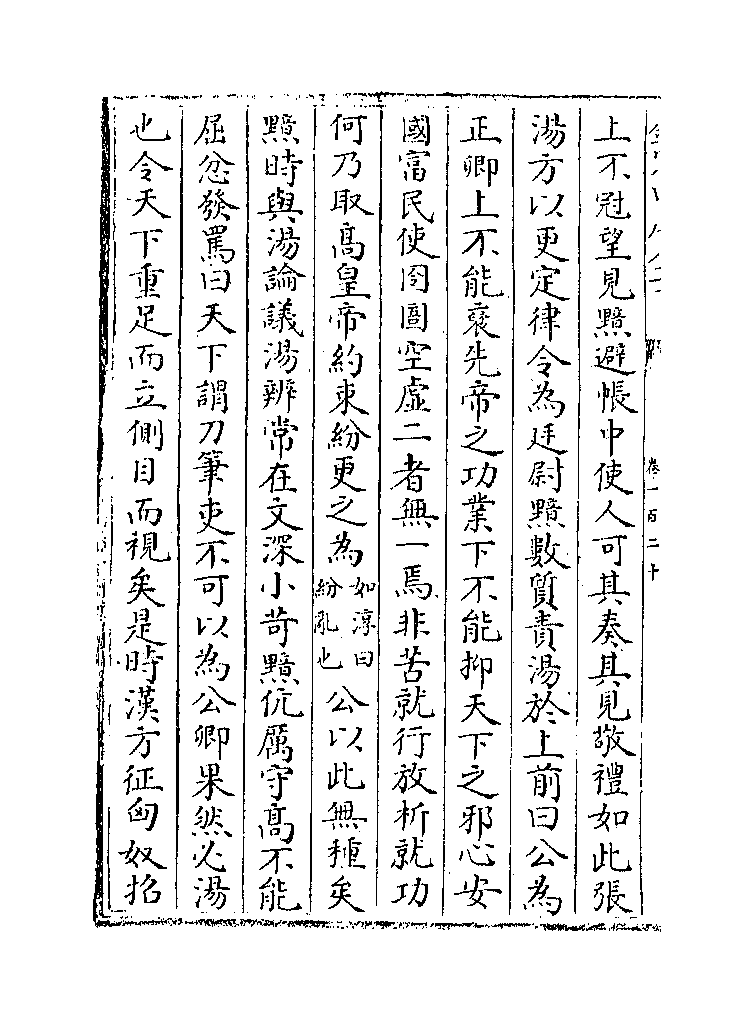 上不冠望見黯避帳中使人可其奏其見敬禮如此張
湯方以更定律令為廷尉黯數質責湯於上前曰公為
正卿上不能襃先帝之功業下不能抑天下之邪心安
國富民使囹圄空虛二者無一焉非苦就行放析就功
何乃取高皇帝約束紛更之為如淳曰紛亂也公以此無種矣
黯時與湯論議湯辨常在文深小苛黯伉厲守高不能
屈忿發罵曰天下謂刀筆吏不可以為公卿果然必湯
也令天下重足而立側目而視矣是時漢方征匈奴招
卷一百二十